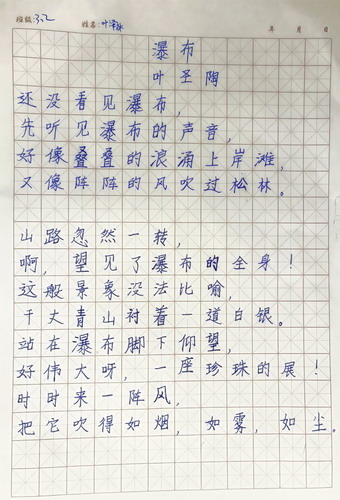 班级:3.2 姓名:叶 年 月 日
瀑布
叶圣陶
还没看见瀑布,
先听见瀑布的声音,
好像叠叠的浪涌上岸滩,
又像阵阵的风吹过松林。
山路忽然一转,
啊, 望见了瀑布的全身!
这般景象没法比喻,
千丈青山衬着一道白银。
站在瀑布脚下仰望,
好伟大呀, 一座珍珠的展!
时时来一阵风,
把它吹得如烟, 如雾, 如尘。